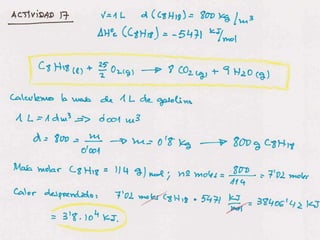 ACTIVIDAD 17 V=1L d (C8H18) = 800 kg/m³
ΔHºc (C8H18) = -5471 kJ/mol
C8H18(l) + 25/2 O2(g) → 8 CO2(g) + 9 H2O(g)
Calculamos la masa de 1L de gasolina
1L = 1dm³ => 0'001 m³
d = 800 = m/0'001 → m = 0'8 kg → 800 g C8H18
Masa molar C8H18 = 114 g/mol; nº moles = 800/114 = 7'02 moles
Calor desprendido: 7'02 moles C8H18 · 5471 kJ/mol = 38406'42 kJ
= 3'8·10⁴ kJ.